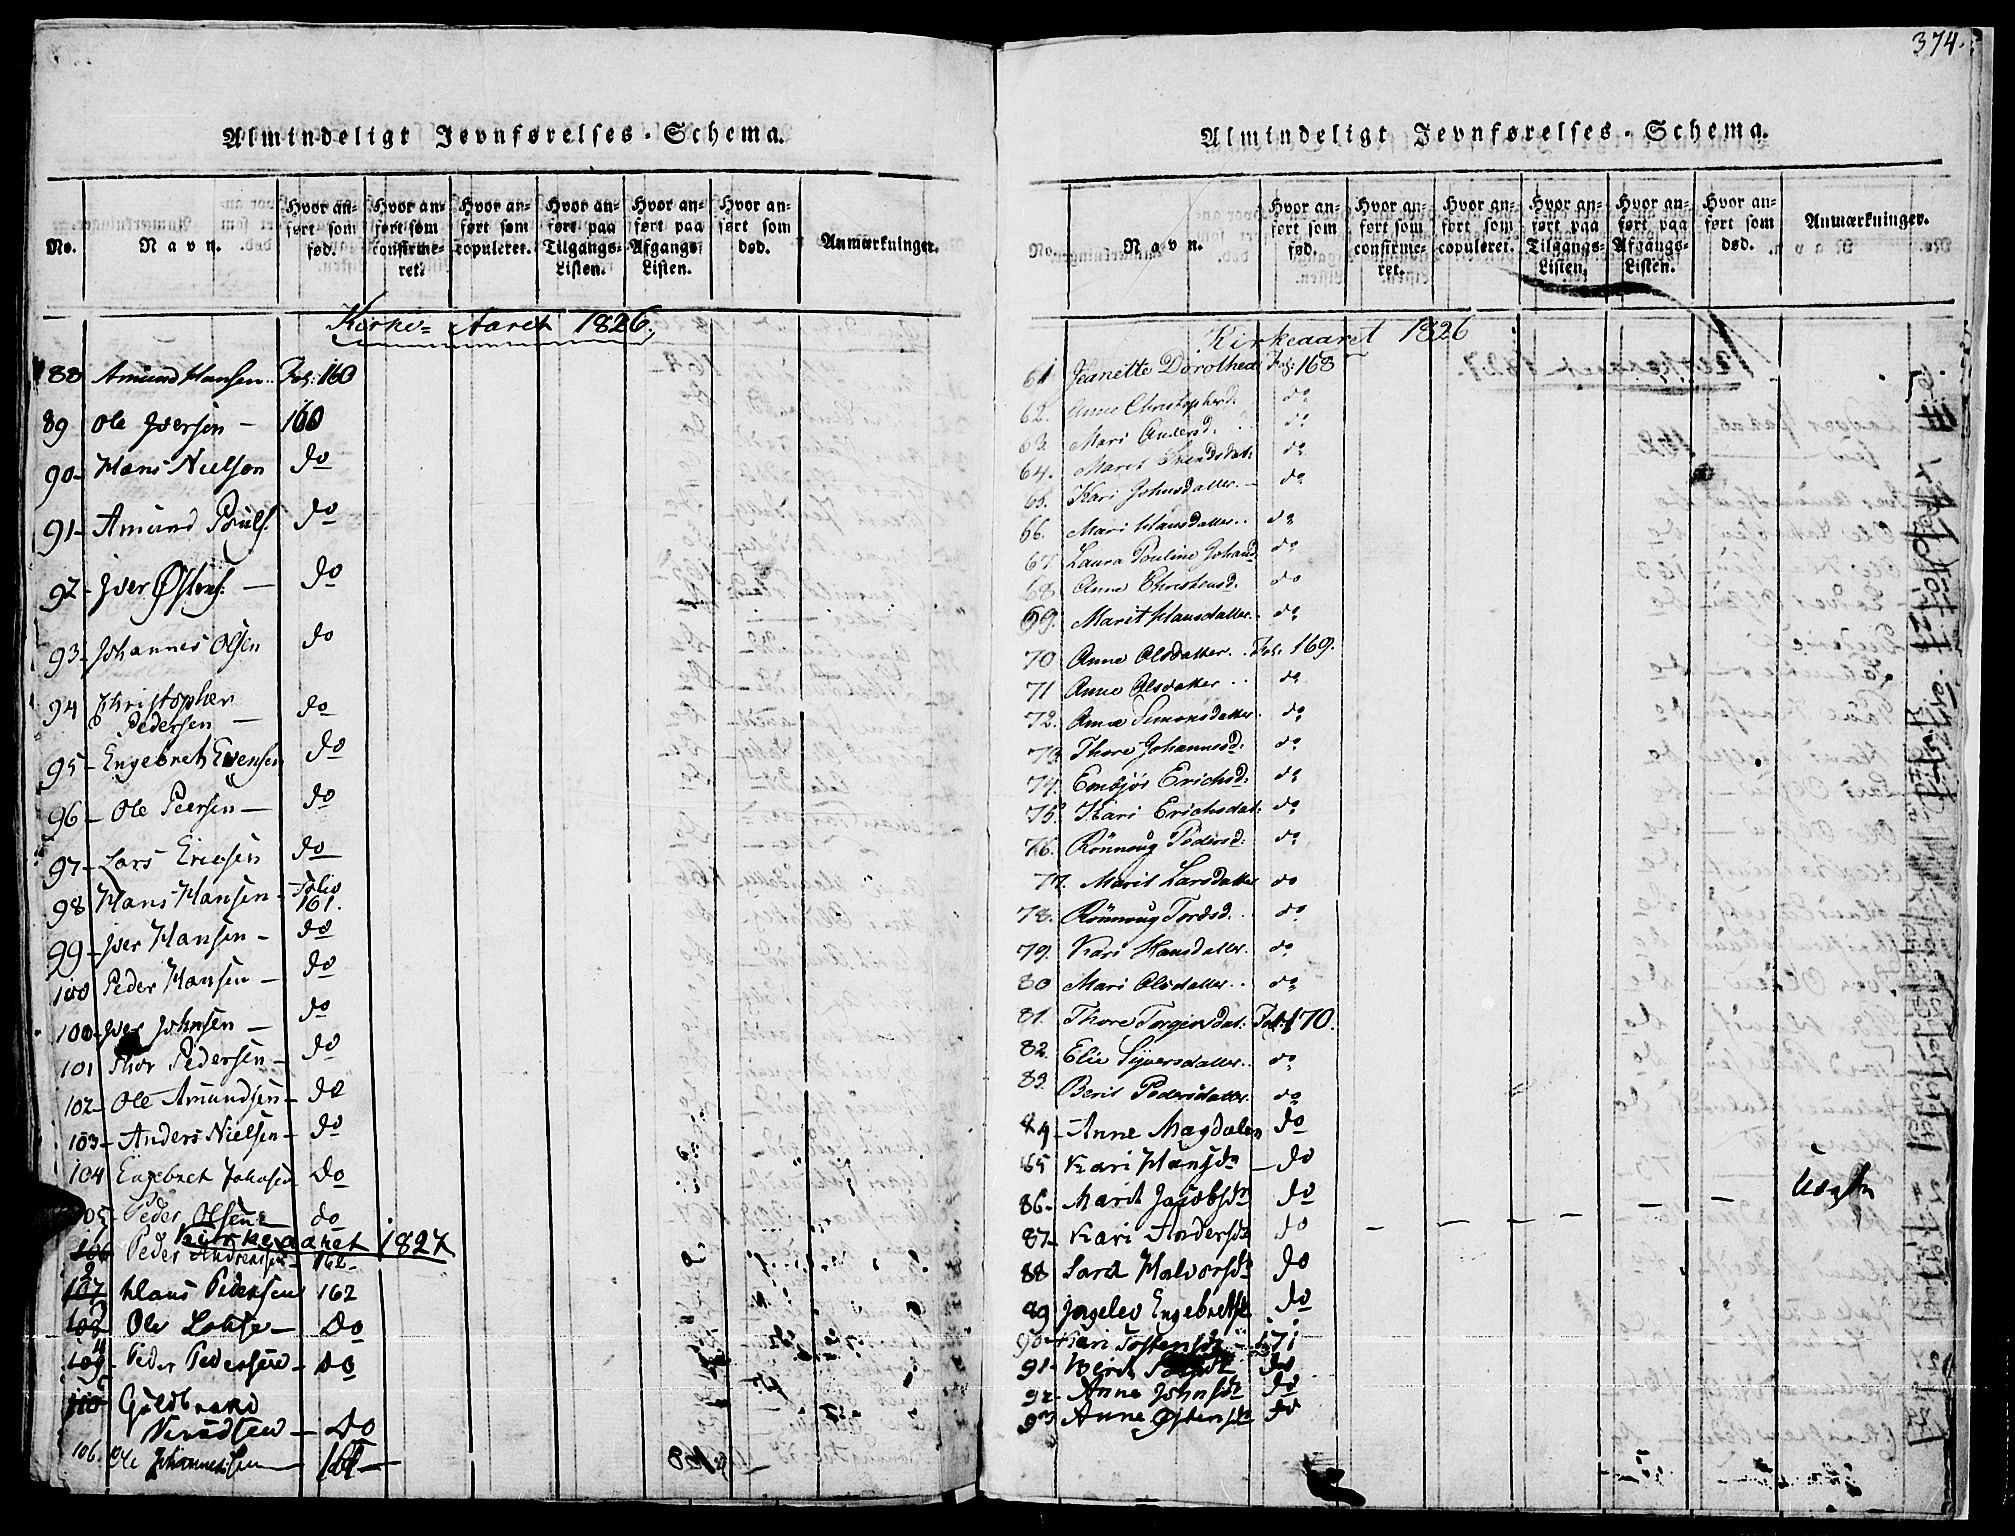 374.
Almindeligt Jevnførelses-Schema.
No. Navn. Hvor anført som fød. Hvor anført som confirmeret. Hvor anført som copuleret. Hvor anført paa Tilgangs-Listen. Hvor anført paa Afgangs-Listen. Hvor anført som død. Anmærkninger.
Kirke-Aaret 1826.
88 Amund Hansen Fol: 160
89 Ole Iversen - 160
90 - Hans Nielsen do
91 - Amund Pouls. do
92 - Iver Østens. - do
93 - Johannes Olsen do
94 Christopher
Pedersen - do
95 - Engebret Evensen do
96 - Ole Peersen - do
97 - Lars Ericsen do
98 Hans Hansen - Folio 161.
99 - Iver Hansen - do
100 Peder Hansen - do
100 - Iver Johnsen - do
101 Thor Pedersen - do
102 - Ole Amundsen - do
103 - Anders Nielsen - do
104 Engebret Johnsen Do
105 - Peder Olsen do
Kirkeaaret 1827
106 Peder Andreasen 162 -
107 Hans Pedersen 162
108 Ole - Do
109 - Peder Pedersen - Do
110 Guldbrand
- Do
106. Ole Johannessen - 161 -
Almindeligt Jevnførelses-Schema.
No. Navn. Hvor anført som fød. Hvor anført som confirmeret. Hvor anført som copuleret. Hvor anført paa Tilgangs-Listen. Hvor anført paa Afgangs-Listen. Hvor anført som død. Anmærkninger.
Kirkeaaret 1826
61 Jeanette Dorothea Fol: 168
62. Anne Christopherd. do
63. Mari Andersd. do
64. Marit Svendsdat: do
65. Kari Johnsdatter. - do
66. Mari Hansdatter. do
67 Laura Pouline Johansd. do
68 Anne Christensd. do
69. Marit Hansdatter. do
70 Anne Olsdatter. Fol. 169.
71 Anne Olsdatter do
72. Anne Simonsdatter. do
73 Thore Johannesd. do
74. Embjør Erichsd. do
75. Kari Erichsdat: do
76. Rønnoug Pedersd. do
77. Marit Larsdatter do
78. Rønnoug Tordsd. do
79. Kari Hansdatter. do
80 Mari Olsdatter. do
81. Thore Torgersdat: Fol: 170.
82. Elie Syversdatter. do
83 Berit Pedersdatter. do
84 - Anne Magdalen do
85 Kari Hansdr - do
86 - Marit Jacobsdr do
87 - Kari Andersdr do
88 Sara Halvorsdr do
89 Ingelev Engebretsdr do
90 - Kari Tostensdr 171
91 - Berit do
92 - Anne Johnsdr do
93 Anne Østensdr do
Uægte